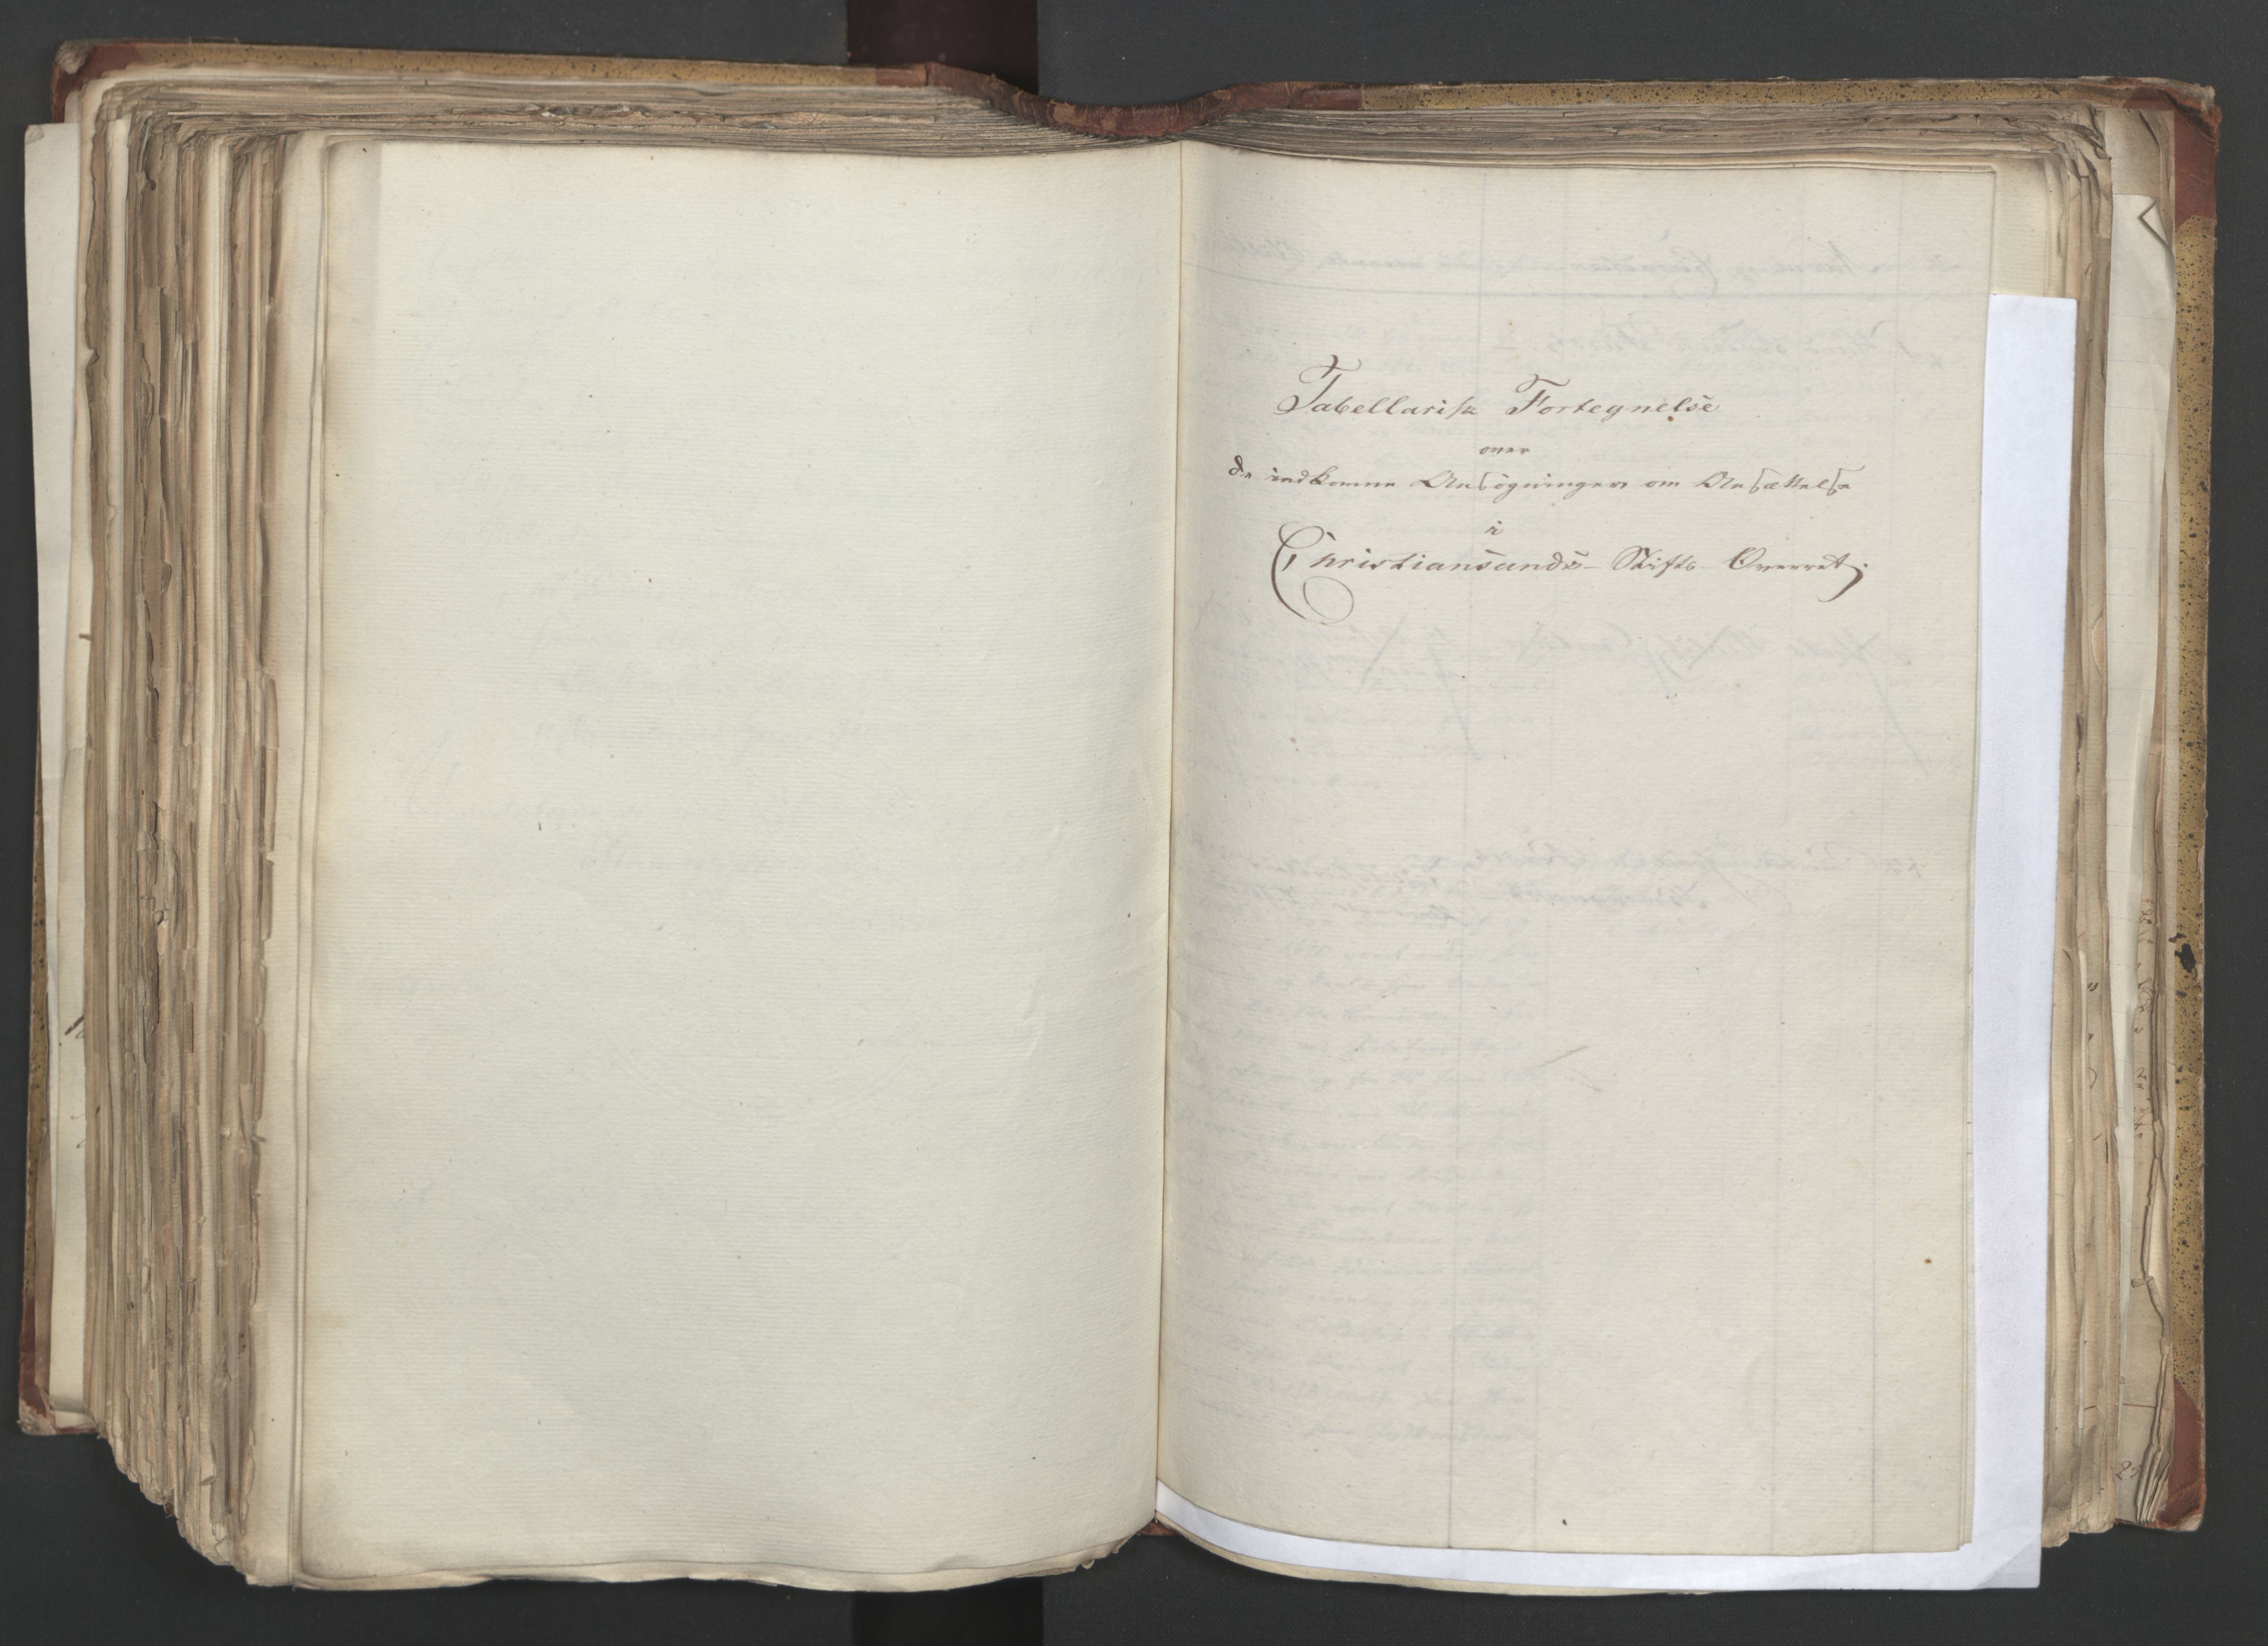 Tabellarisk Fortegnelse
over
de indkomne Ansögninger om Ansættelse
i
Christiansands- Stifts- Overret.